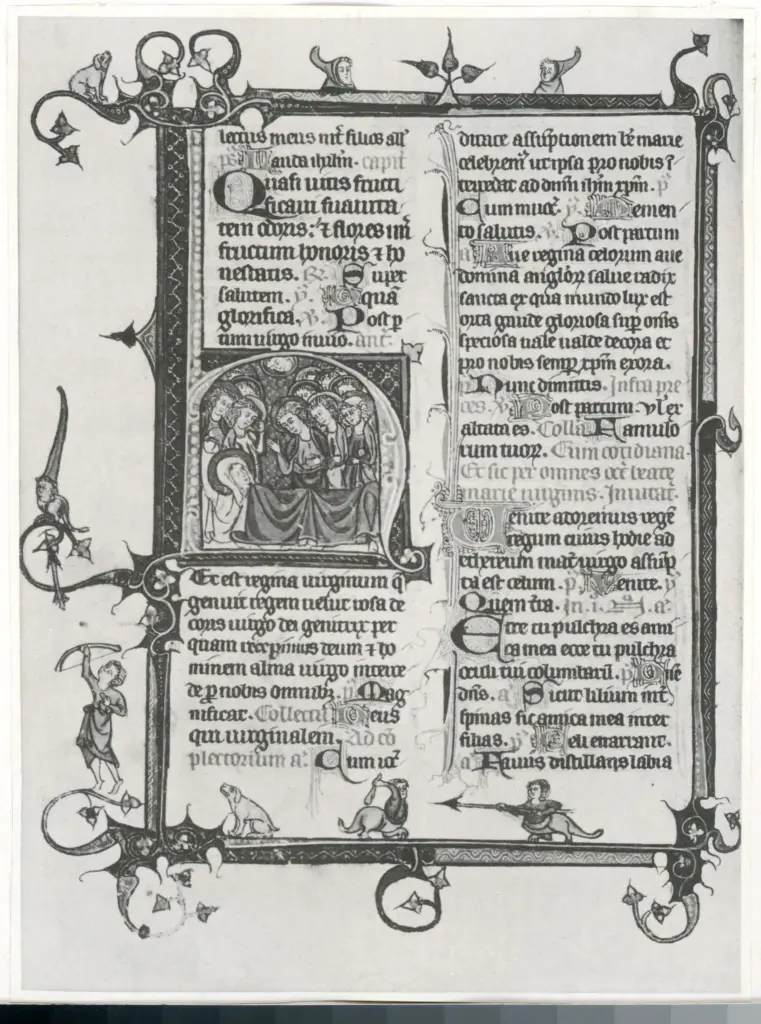 lectus meus int̄ filios all̄
p̄s Lauda ihrlm̄. capit̄
Quasi uitis fructi
ficaui suauita
tem odoris: ⁊ flores mī
fructum honoris ⁊ ho
nestatis. R̄. Super
salutem. v̄. quā
glorifica. v̄. Post p
tum uirgo inuio. ant̄.
Hec est regina uirginum q̄
genuit regem uelut rosa de
cora uirgo dei genitrix per
quam reperimus deum ⁊ ho
minem alma uirgo interce
de p nobis omnibꝫ. p̄ Mag
nificat. Collectā Deus
qui uirginalem. Ad cō
plectorium a. Cum ioc̄
ditate assūptionem bē marie
celebrem̄ ut ipsa pro nobis ī
tercedat ad dn̄m ihm̄ xpm̄. p̄
Cum inuoc̄. ȳ. Memen
to salutis. v̄. Post partum
a Aue regina celorum aue
domina anglōꝝ salue radix
sancta ex qua mundo lux est
orta gaude gloriosa sup̄ om̄s
speciosa uale ualde decora et
pro nobis semp̄ xpm̄ exora.
p̄ Nunc dimittis. Infra pre
ces. v̄. Post partum. ul̄ ex
altata es. Collā Famulo
rum tuoꝝ. Cum cotidiana
Et sic per omnes oct̄ beate
marie uirginis. Inuitat̄.
Uenite adoremus regē
regum cuius hodie ad
ethereum mat̄ uirgo assūp
ta est celum. p̄ Uenite. ȳ
Quem t̄ra. In .i. a.
Ecce tu pulchra es ami
ca mea ecce tu pulchra
oculi tui columbarū. p̄ Dn̄e
dn̄s. a Sicut lilium int̄
spinas sic amica mea inter
filias. p̄ Celi enarrant.
a Fauus distillans labia